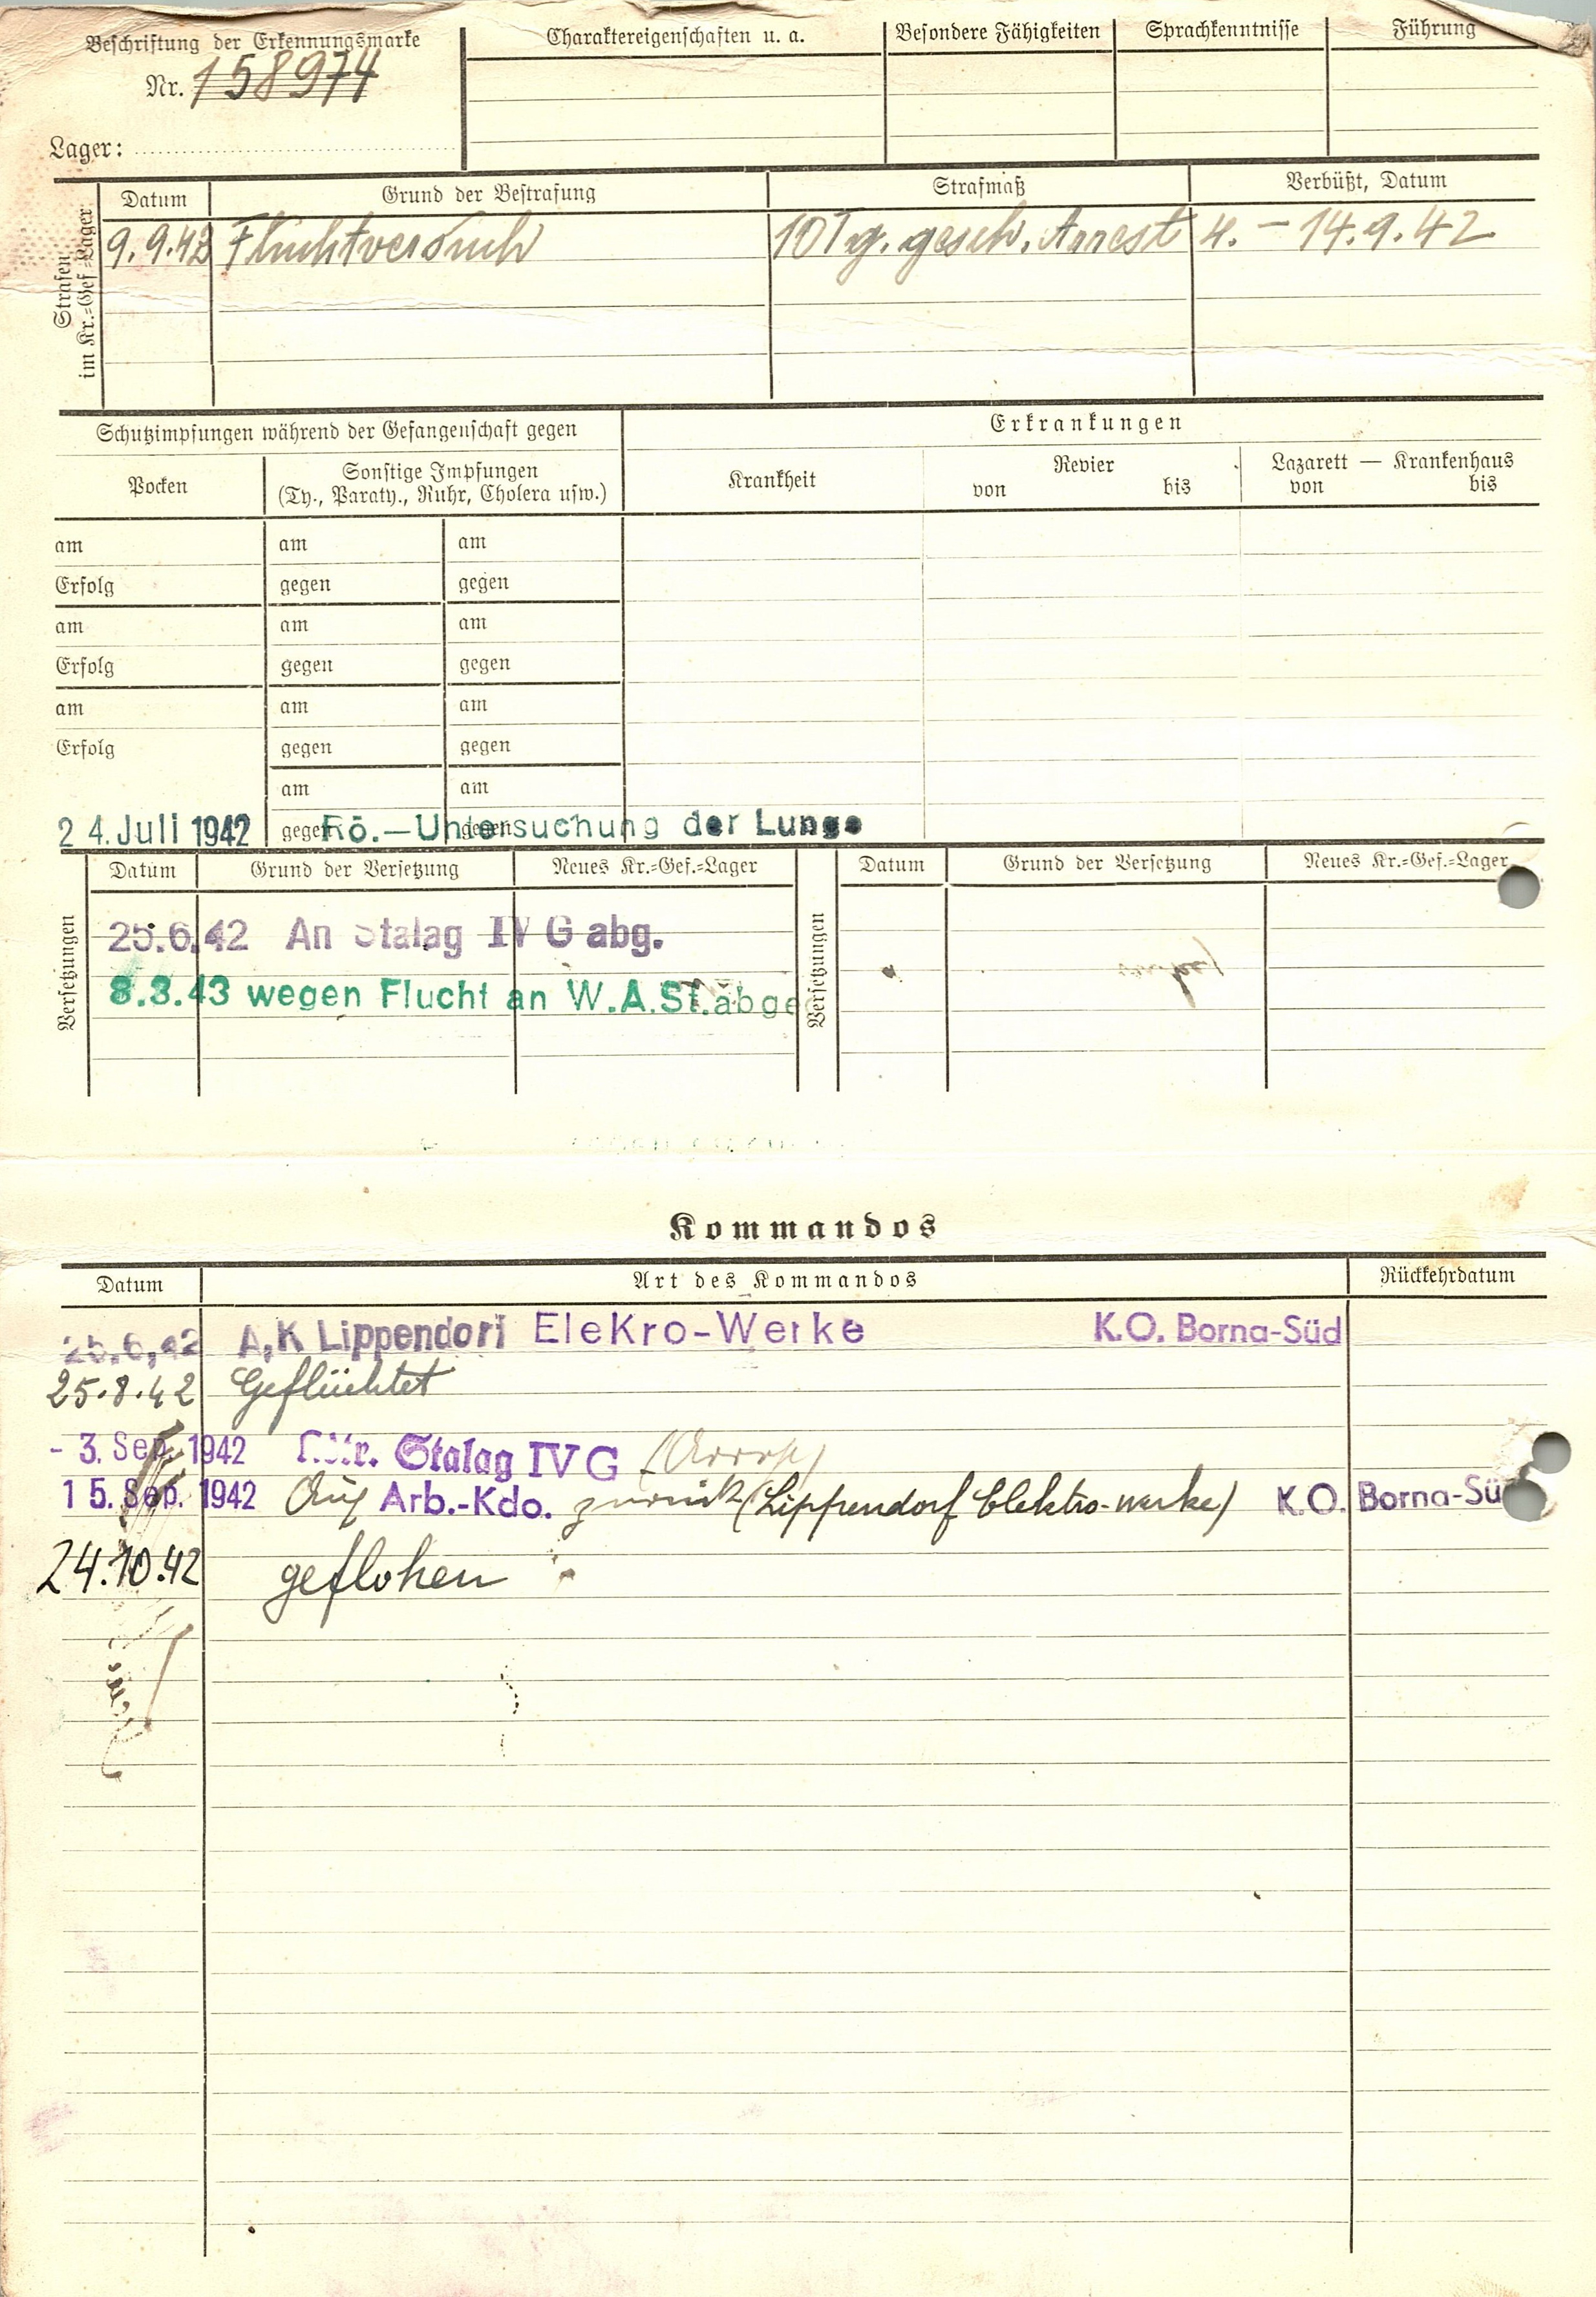 Beschriftung der Erkennungsmarke
Nr. 158974
Lager:
Charaktereigenschaften u. a. Besondere Fähigkeiten Sprachkenntnisse Führung
Strafen im Kr.=Gef.=Lager
Datum Grund der Bestrafung Strafmaß Verbüßt, Datum
9.9.42 Fluchtversuch 10 Tg. gesch. Arrest 4. – 14.9.42
Schutzimpfungen während der Gefangenschaft gegen Erkrankungen
Pocken Sonstige Impfungen (Ty., Paraty., Ruhr, Cholera usw.) Krankheit Revier von bis Lazarett — Krankenhaus von bis
am am am
Erfolg gegen gegen
am am am
Erfolg gegen gegen
am am am
Erfolg gegen gegen
am am
gegen gegen
24. Juli 1942 Rö.—Untersuchung der Lunge
Versetzungen Datum Grund der Versetzung Neues Kr.=Gef.=Lager Versetzungen Datum Grund der Versetzung Neues Kr.=Gef.=Lager
25.6.42 An Stalag IV G abg.
8.3.43 wegen Flucht an W.A.St. abge
Kommandos
Datum Art des Kommandos Rückkehrdatum
25.6.42 A.K Lippendorf EleKro-Werke K.O. Borna-Süd
25.8.42 Geflüchtet
- 3. Sep. 1942 Stalag IV G
15. Sep. 1942 Auf Arb.-Kdo. zurück (Lippendorf Elektro-werke) K.O. Borna-Sü
24.10.42 geflohen